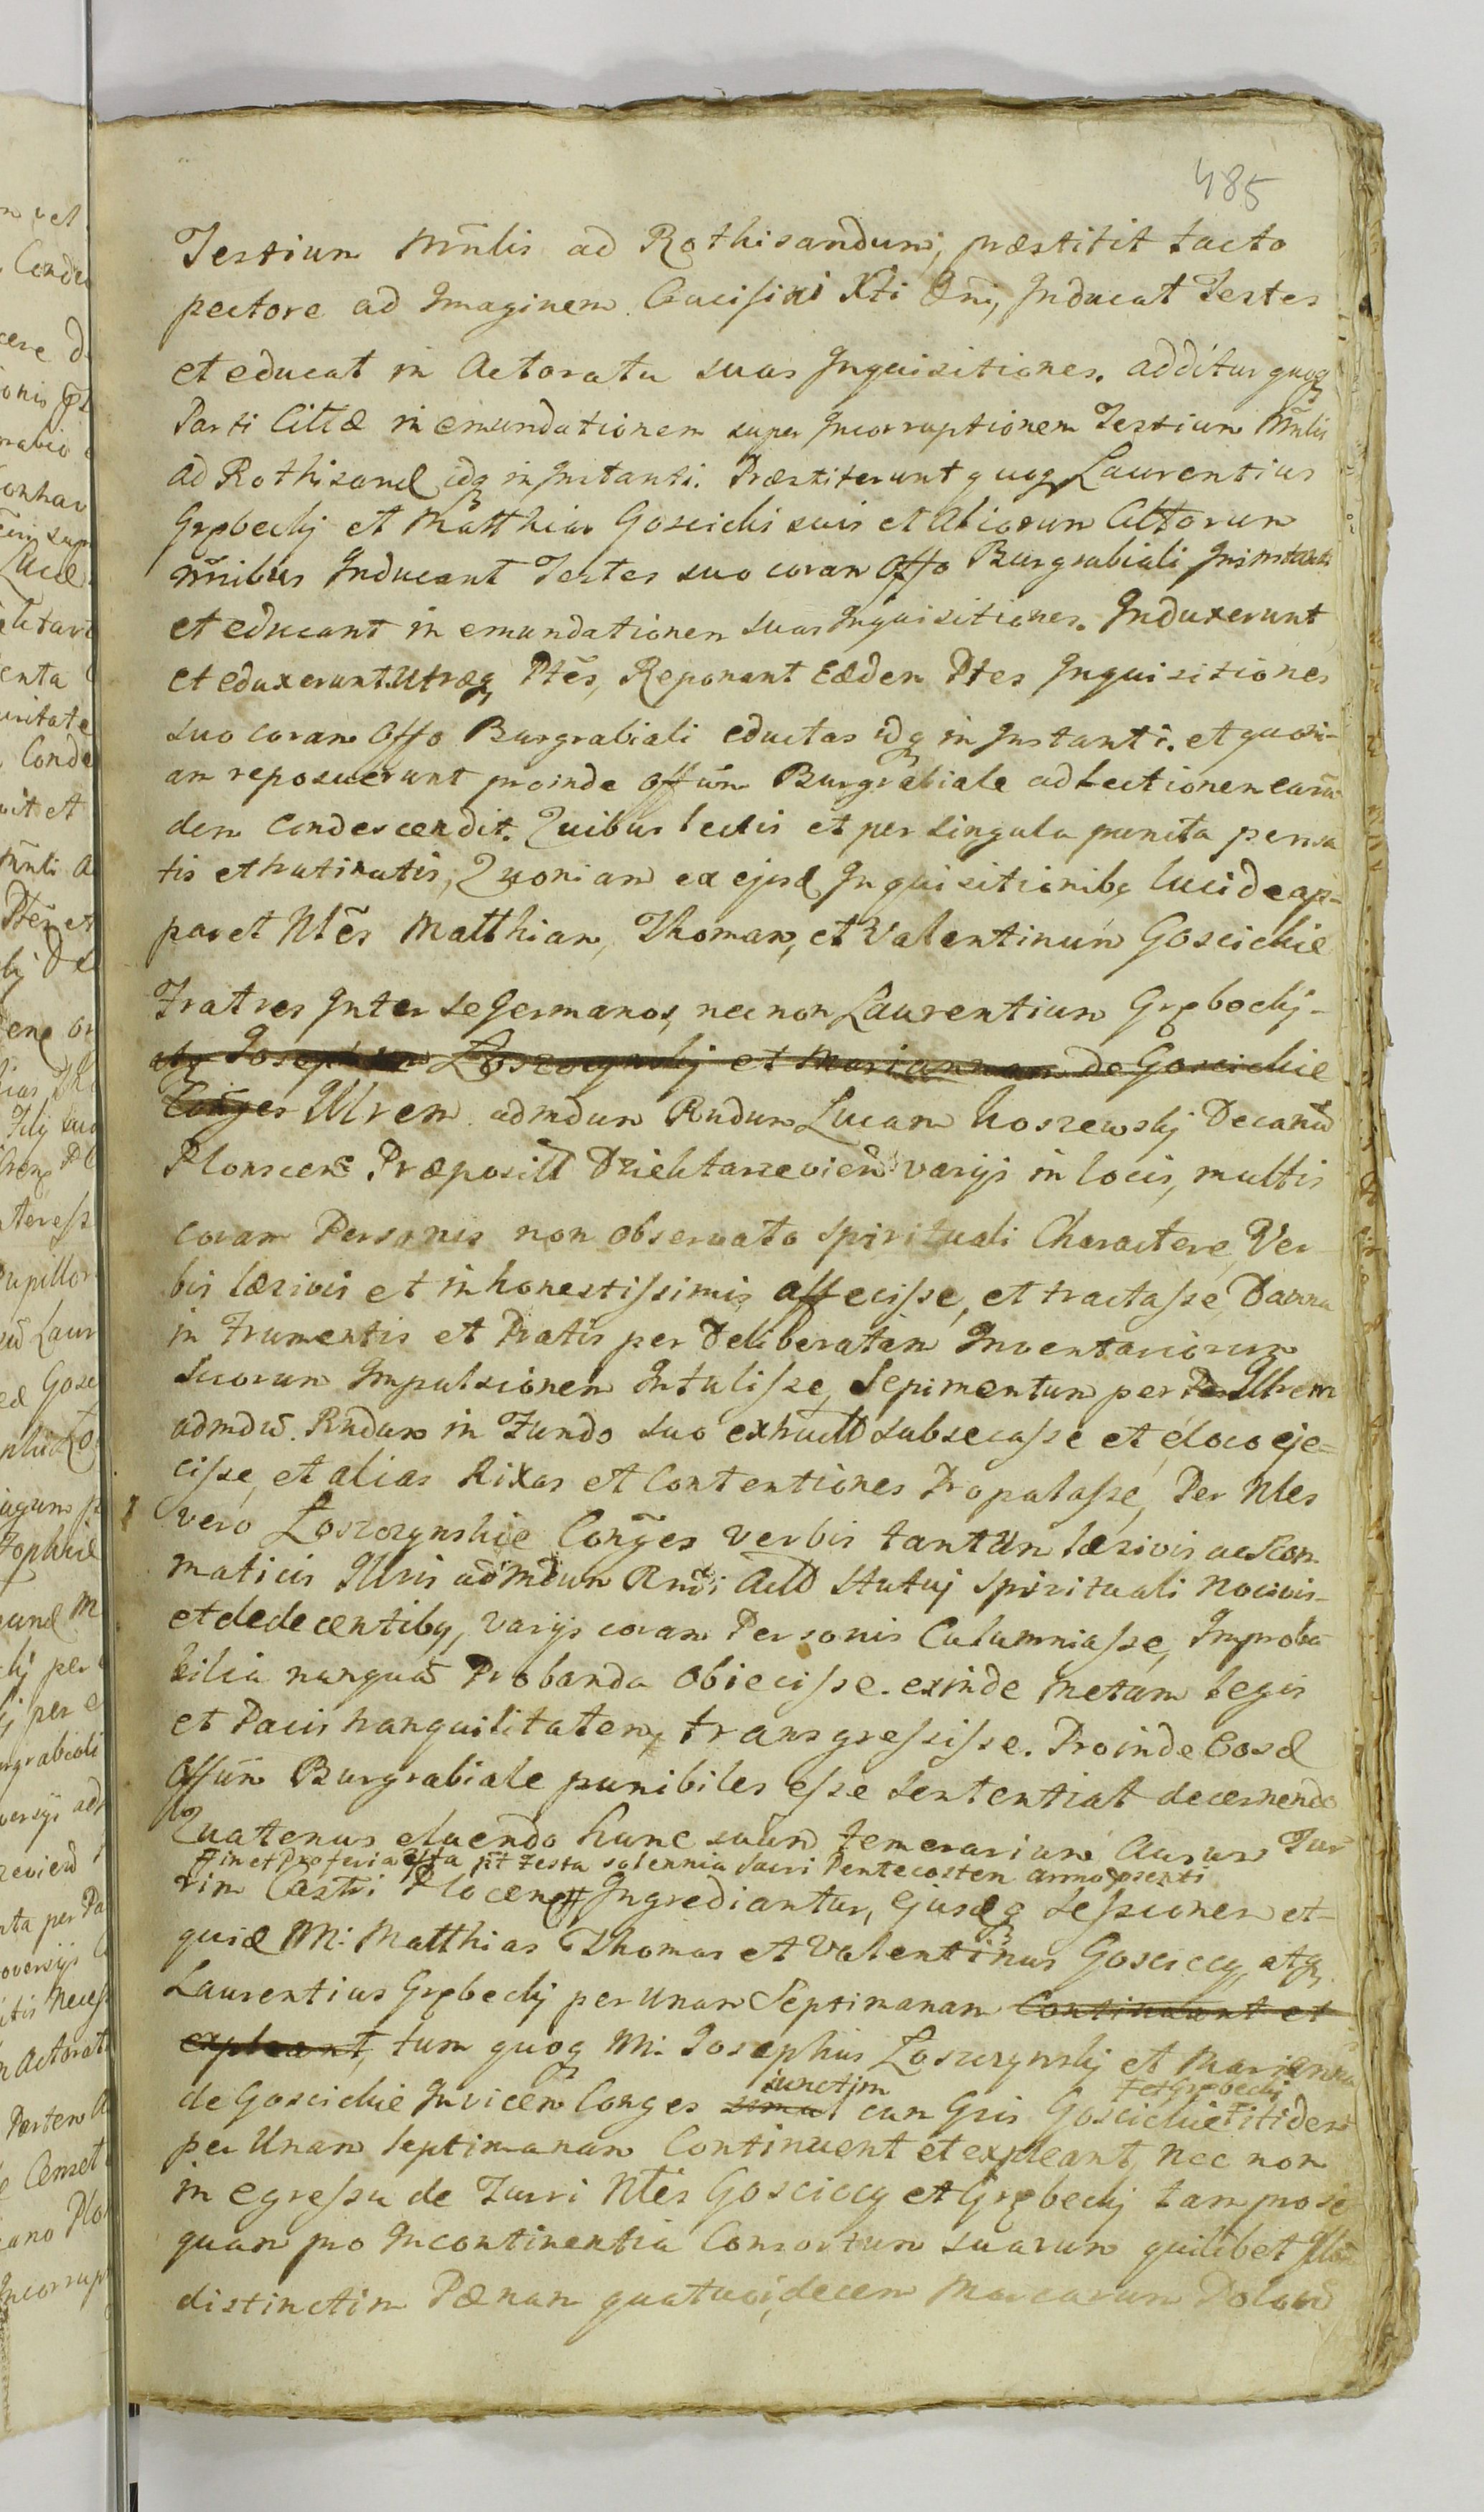 485
Testium Mñlis ad Rothisandum, præstitit tacto
pectore ad Imaginem Crucifixi Xti Dni, Inducat Testes
et educat in Actoratu suas Inquisitiones. additur quoq
Parti Cittæ in emundationem super Incorruptionem Testium Mñlis
ad Rothisand idq in Instanti. Præstiterunt quoq Laurentius
Grębecki et Matthias Goscicki suis et Aliorum Cittorum
Nñibus Inducant Testes suo coram Offo Burgrabiali Ininstanti
et educant in emundationem suas Inquisitiones. Induxerunt
et eduxerunt Utræq Ptes, Reponant Eædem Ptes Inquisitiones
suo coram Offo Burgrabiali eductas idq in Instanti. et quoni-
am reposuerunt proinde Offũm Burgrabiale ad Lectionem earũ
dem Condescendit. Quibus lectis et per singula puncta pensa
tis et trutinatis, Quoniam ex ejusd Inquisitionibq lucide ap-
paret Ntes Matthiam, Thomam, et Valentinum Goscickie
Fratres Inter se Germanos, nec non Laurentium Grębecki -
atq Josephum Łoszczynski et Mariannam de Goscickie
Conges Illrem admdum Rndum Lucam Koszewski Decanũ
Plonscen Præposit Dziektarzevien varijs in locis, multis
coram Personis non observato Spirituali Charactere, Ver
bis læsivis et inhonestissimis affecisse, et tractasse, Damna
in Frumentis et Pratis per Deliberatam Inventariorum
Suorum Impulsionem Intulisse, Sepimentum per Illrem
admdũ. Rndum in Fundo suo extruct subsecasse et é loco eje=
cisse, et alias Rixas et Contentiones Propalasse, Per Ntes
vero Łoszczynskie Conges verbis tantum læsivis ac Scom
maticis Illris admdum Rndi Act Statui Spirituali Nocivis-
et dedecentibq, varijs coram Personis Calumniasse, Improba
bilia nunquã Probanda Obiecisse. exinde Metam Legis
et Pacis tranquilitatem, transgressisse. Proinde Eosd
Offum Burgrabiale punibiles esse Sententiat decernendo
Quatenus eluendo hunc suum temerarium Ausum Tur
in et Pro feria 4ta pst Festa solennia Sacri Pentecosten anno psenti
rim Castri Plocen Ingrediantur, Ejusdq Sessionem et-
quid M: Matthias Thomas et Valentinus Gosciccy atq
Laurentius Grębecki per Unam Septimanam Continuant et
expleant, tum quoq M: Josephus Łoszczynski et Marianna
de Goscickie Invicem Conges simul iunctim cum Gnis Goscickie et Grębecki itidem
per Unam Septimanam Continuent et expleant, nec non
in egressu de Turri Ntes Gosciccy et Grębecki tam pro se
quam pro Incontinentia Consortum suarum quilibet Illor
distinctim Pænam quatuordecem Marcarum Polon